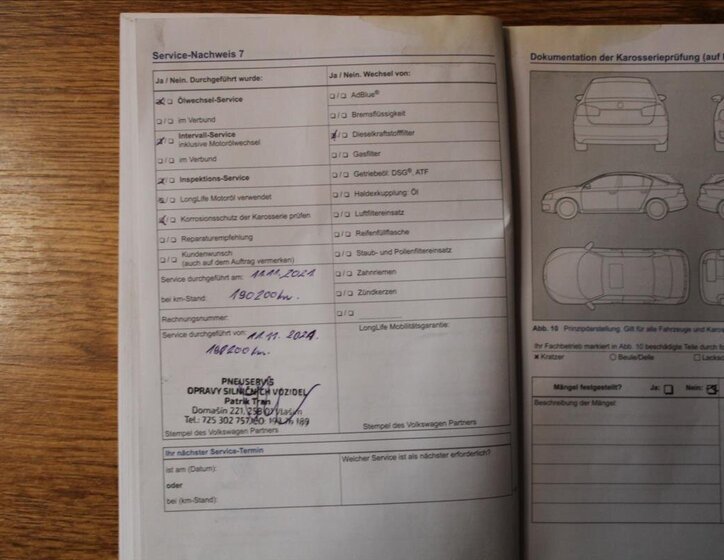 Service-Nachweis 7
Ja / Nein. Durchgeführt wurde:
Ölwechsel-Service
im Verbund
Intervall-Service
inklusive Motorölwechsel
im Verbund
Inspektions-Service
LongLife Motoröl verwendet
Korrosionsschutz der Karosserie prüfen
Reparaturempfehlung
Kundenwunsch
(auch auf dem Auftrag vermerken)
Service durchgeführt am: 11.11.2021
bei km-Stand: 190200km.
Rechnungsnummer:
Service durchgeführt von: 11.11.2021.
190200km.
PNEUSERVIS
OPRAVY SILNIČNÍCH VOZIDEL
Patrik Tran
Domašín 221, 258 01 Vlašim
Tel.: 725 302 757
Stempel des Volkswagen Partners
Ja / Nein. Wechsel von:
AdBlue®
Bremsflüssigkeit
Dieselkraftstofffilter
Gasfilter
Getriebeöl: DSG®, ATF
Haldexkupplung: Öl
Luftfiltereinsatz
Reifenfüllflasche
Staub- und Pollenfiltereinsatz
Zahnriemen
Zündkerzen
LongLife Mobilitätsgarantie:
Stempel des Volkswagen Partners
Ihr nächster Service-Termin
ist am (Datum):
oder
bei (km-Stand):
Welcher Service ist als nächster erforderlich?
Dokumentation der Karosserieprüfung (auf
Abb. 10 Prinzipdarstellung. Gilt für alle Fahrzeuge und
Ihr Fachbetrieb markiert in Abb. 10 beschädigte Teile durch
x Kratzer
Beule/Delle
Mängel festgestellt? Ja: Nein:
Beschreibung der Mängel: